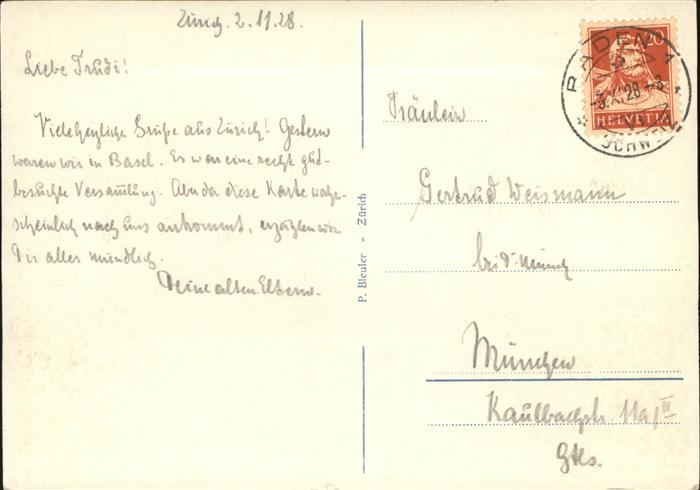 Zürich. 2.11.28.
Liebe Trudi!
Viele herzliche Grüße aus Zürich! Gestern
waren wir in Basel. Es war eine recht gut-
besuchte Versammlung. Aber da diese Karte wahr-
scheinlich nach uns ankommt, erzählen wir
Dir alles mündlich.
Deine alten Eltern.
P. Bleuler - Zürich
20
HELVETIA
BADEN 1
-3.XI.28-8
SCHWEIZ
Fräulein
Gertrud Weismann
bei
München
Kaulbachstr. 11a/III
Gths.